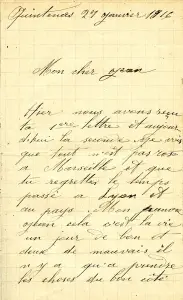 27 janvier 1916
Mon cher Jean
Hier nous avons reçu
ta 1ère lettre et aujour
d'hui la seconde je vois
que tout n'est pas rose
à Marseille et que
tu regrettes le temps
passé à Lyon et
au pays Mon pauvre
Jean cela c'est la vie
un jour de bon et
deux de mauvais il
n'y a qu'à prendre
les choses du bon côté